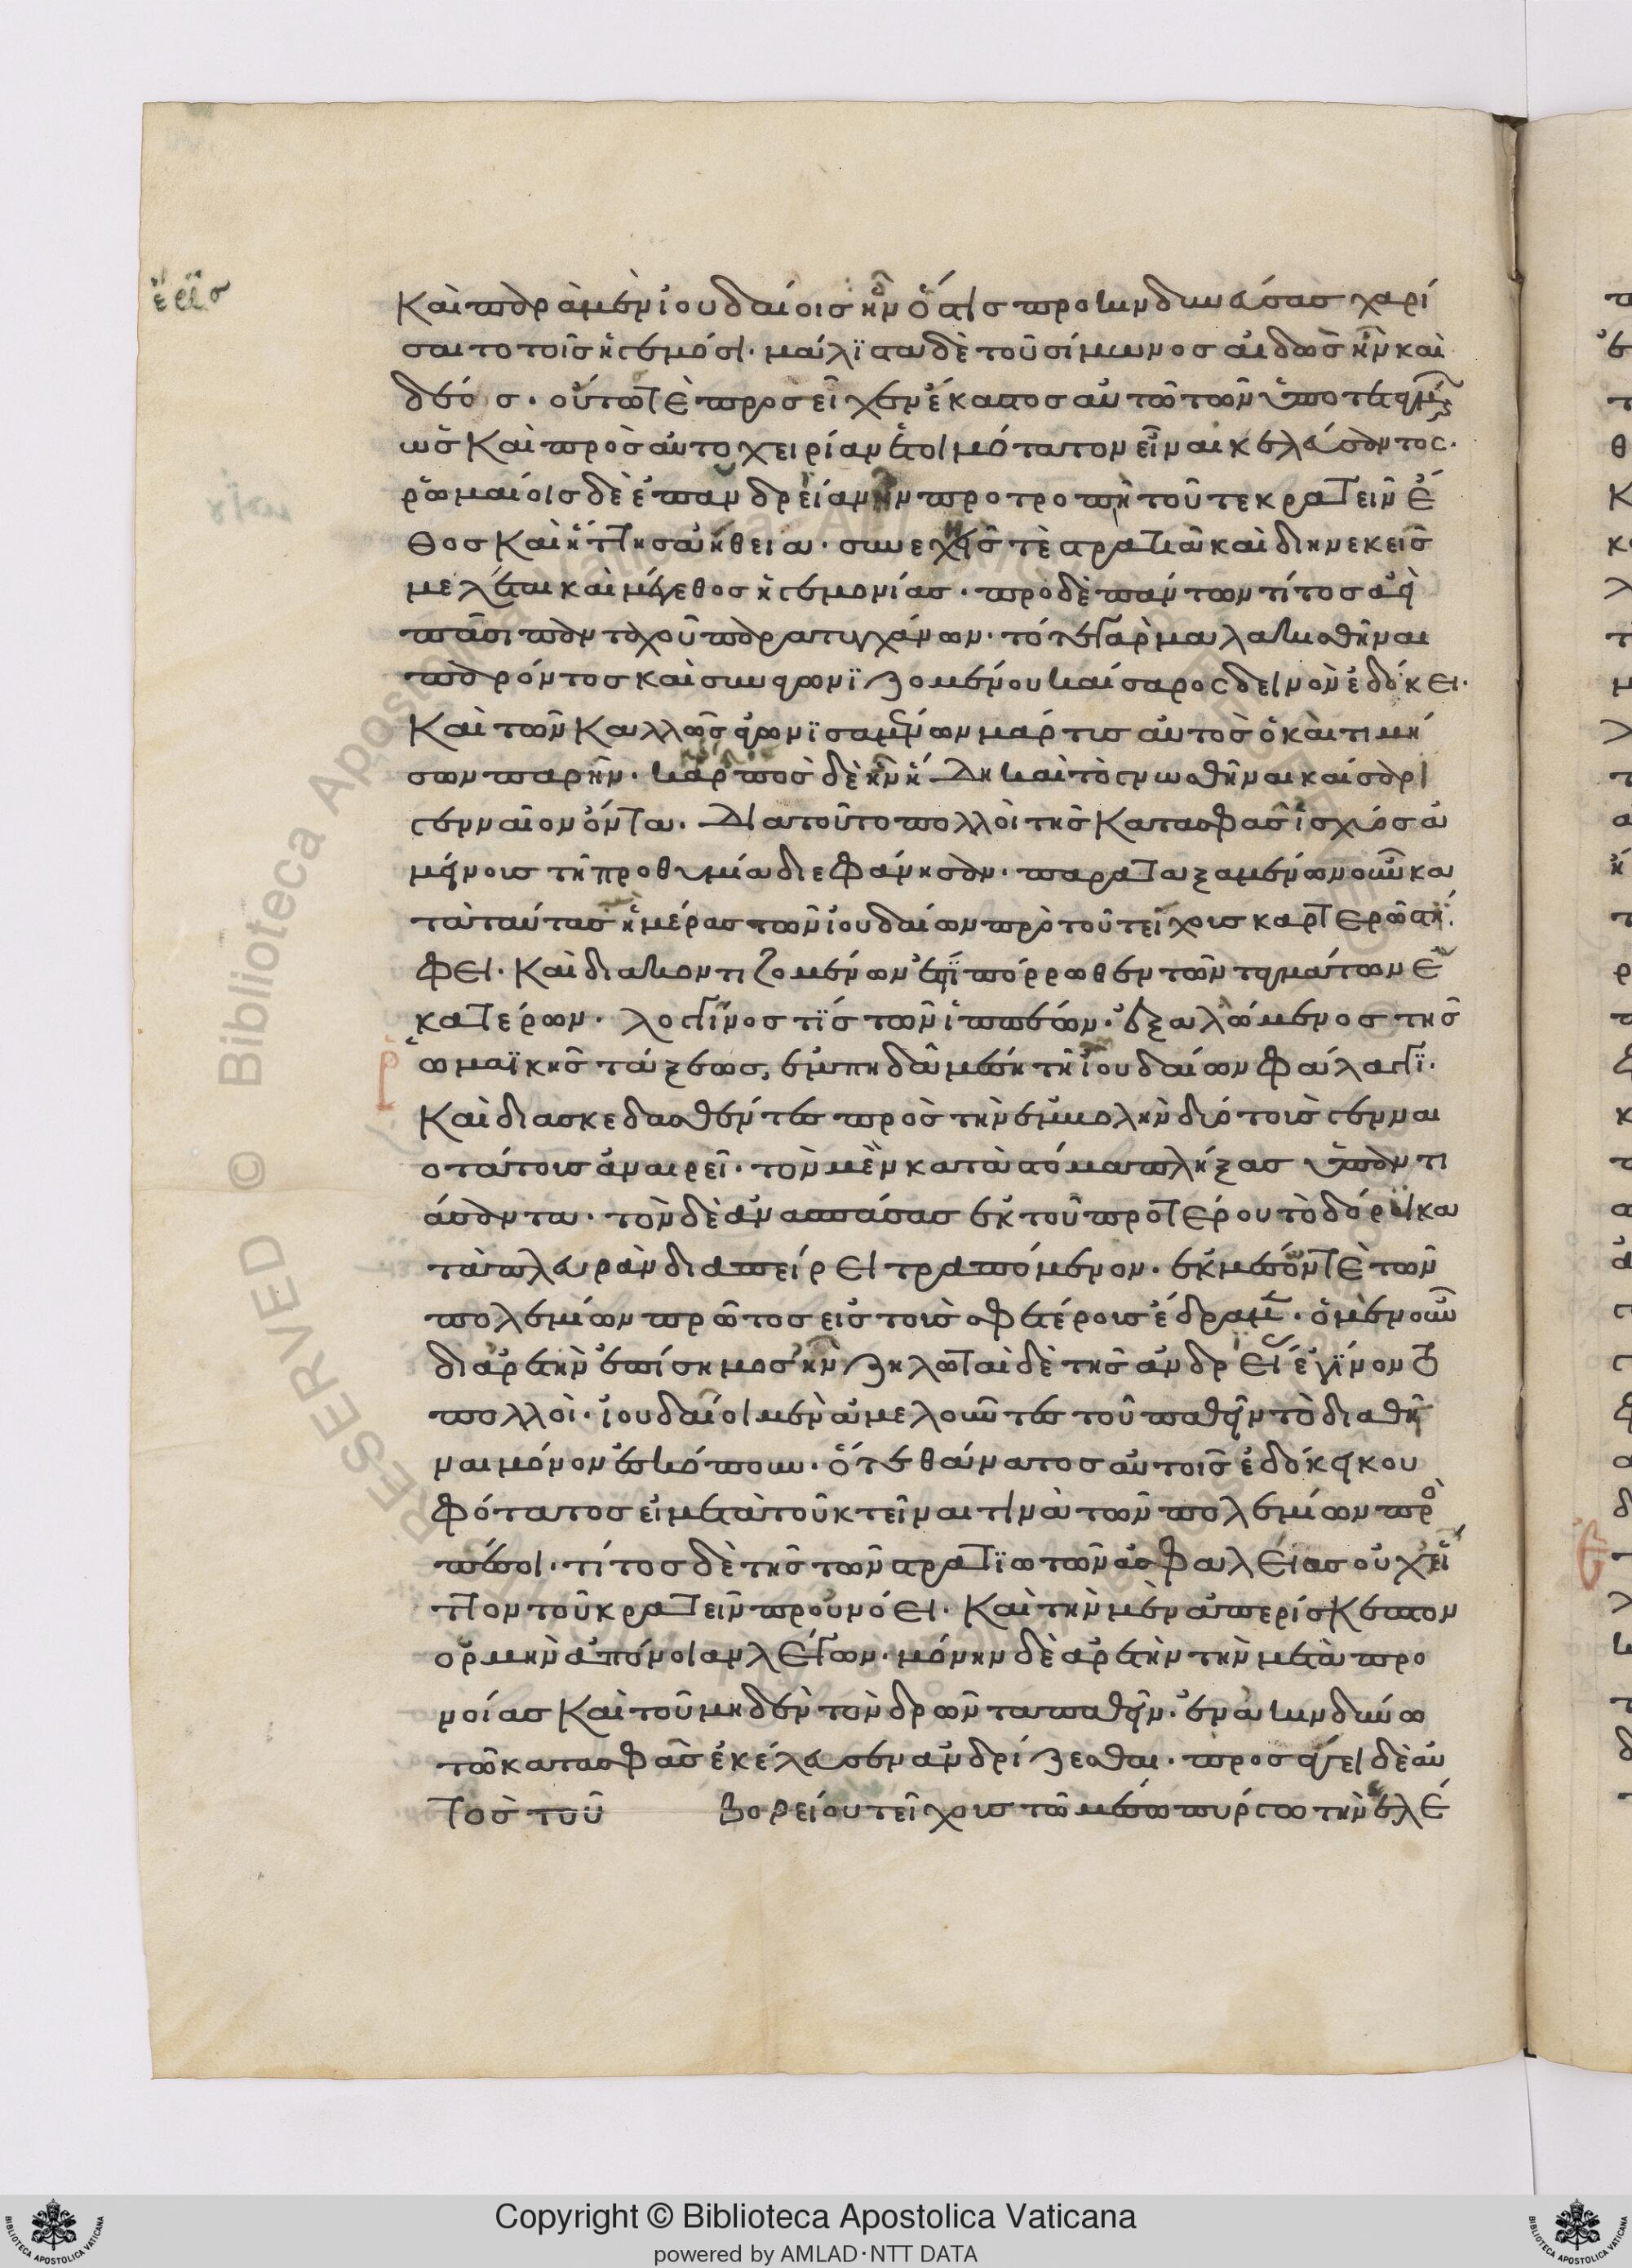 καὶ παρὰ μὲν ἰουδαίοις ἦν ὅστις προκινδυνεύσας χαρί
σαιτο τοῖς ἡγεμόσι· μάλϊστα δὲ τοῦ σίμωνος αἰδὼς ἦν καὶ
δέος· οὕτω τὲ προσεῖχεν ἕκαστος αὐτῶ τῶν ὑποτεταγμέ
ὡς καὶ πρὸς αὐτοχειρίαν ἑτοιμότατον εἶναι κελεύσαντος·
ῥωμαίοις δὲ ἐπανδρείαν ἦν προτροπὴ τοῦ τε κρατεῖν ἔ
θος καὶ ἥττης ἀήθεια· συνεχεῖς τὲ στρατιαὶ καὶ διηνεκεῖς
μελέται καὶ μέγεθος ἡγεμονίας· προ δὲ πάντων τίτος ἀεὶ
πᾶσι πανταχοῦ παρατυγχάνων· τό τε γὰρ μαλακισθῆναι
παρόντος καὶ συναγωνϊζομένου καίσαρος δεινὸν ἐδόκει·
καὶ τῶν καλλῶς ἀγωνϊσαμένων μάρτις αὐτὸς ὁ καὶ τιμή
σων παρῆν· καρπὸς δὲ ἦν ἤδη καὶ τὸ γνωσθῆναι καίσαρι
γενναῖον ὄντα. διατοῦτο πολλοὶ τῆς κατασφᾶς ἰσχύος ἀ
μείνοις τῆ προθυμία διεφάνησαν· παραταξαμένων οὖν κα
τὰ ταύτας ἡμέρας τῶν ἰουδαίων πρὸ τοῦ τείχοις καρτερῶ στί
φει· καὶ διακοντιζομένων ἔτϊ πόρρωθεν τῶν ταγμάτων ἑ
κατέρων· λογγίνος τϊς τῶν ἱππέων· ἐξαλόμενος τῆς
ῥωμαϊκῆς τάξεως, ἐμπηδᾶ μέση τῆ ἰουδαίων φάλαγγϊ·
καὶ διασκεδασθέντες πρὸς τὴν ἐμβολὴν δύο τοὺς γενναι
οτάτοις ἀναιρεῖ· τὸν μὲν κατὰ στόμα πλήξας ὑπαντι
άσαντα· τὸν δὲ ἀνασπάσας ἐκ τοῦ προτέρου τὸ δόρυ κα
τὰ πλευρὰν διαπείρει τραπόμενον· ἐκ μέσων τὲ τῶν
πολεμίων πρῶτος εἰς τοὺς σφετέροις ἔδραμε· ὁ μὲν οὖν
δι ἀρετὴν ἐπίσημος ἦν ζηλωταὶ δὲ τῆς ἀνδρείας ἐγίνοντο
πολλοὶ· ἰουδαίοι μὲν ἀμελοῦντες τοῦ παθεῖν τὸ διαθεῖ
ναι μόνον ἐσκόπουν· ὅ τε θάνατος αὐτοῖς ἐδόκει κου
φότατος εἰ μετὰ τοῦ κτεῖναι τινὰ τῶν πολεμίων προ
πέσοι· τίτος δὲ τῆς τῶν στρατϊωτῶν ἀσφαλείας οὐχ ἧ
ττον τοῦ κρατεῖν προυνόει· καὶ τὴν μὲν ἀπερίσκεπτον
ὁρμὴν ἀπόνοιαν λέγων· μόνην δὲ ἀρετὴν τὴν μετὰ προ
νοίας καὶ τοῦ μηδὲν τὸν δρῶντα παθεῖν· ἐν ἀκινδύνω
τῶ κατασφᾶς ἐκέλευσεν ἀνδρίζεσθαι· προσάγει δὲ αὐ
τὸς τοῦ βορείου τείχοις τῶ μέσω πύργω τὴν ἑλέ